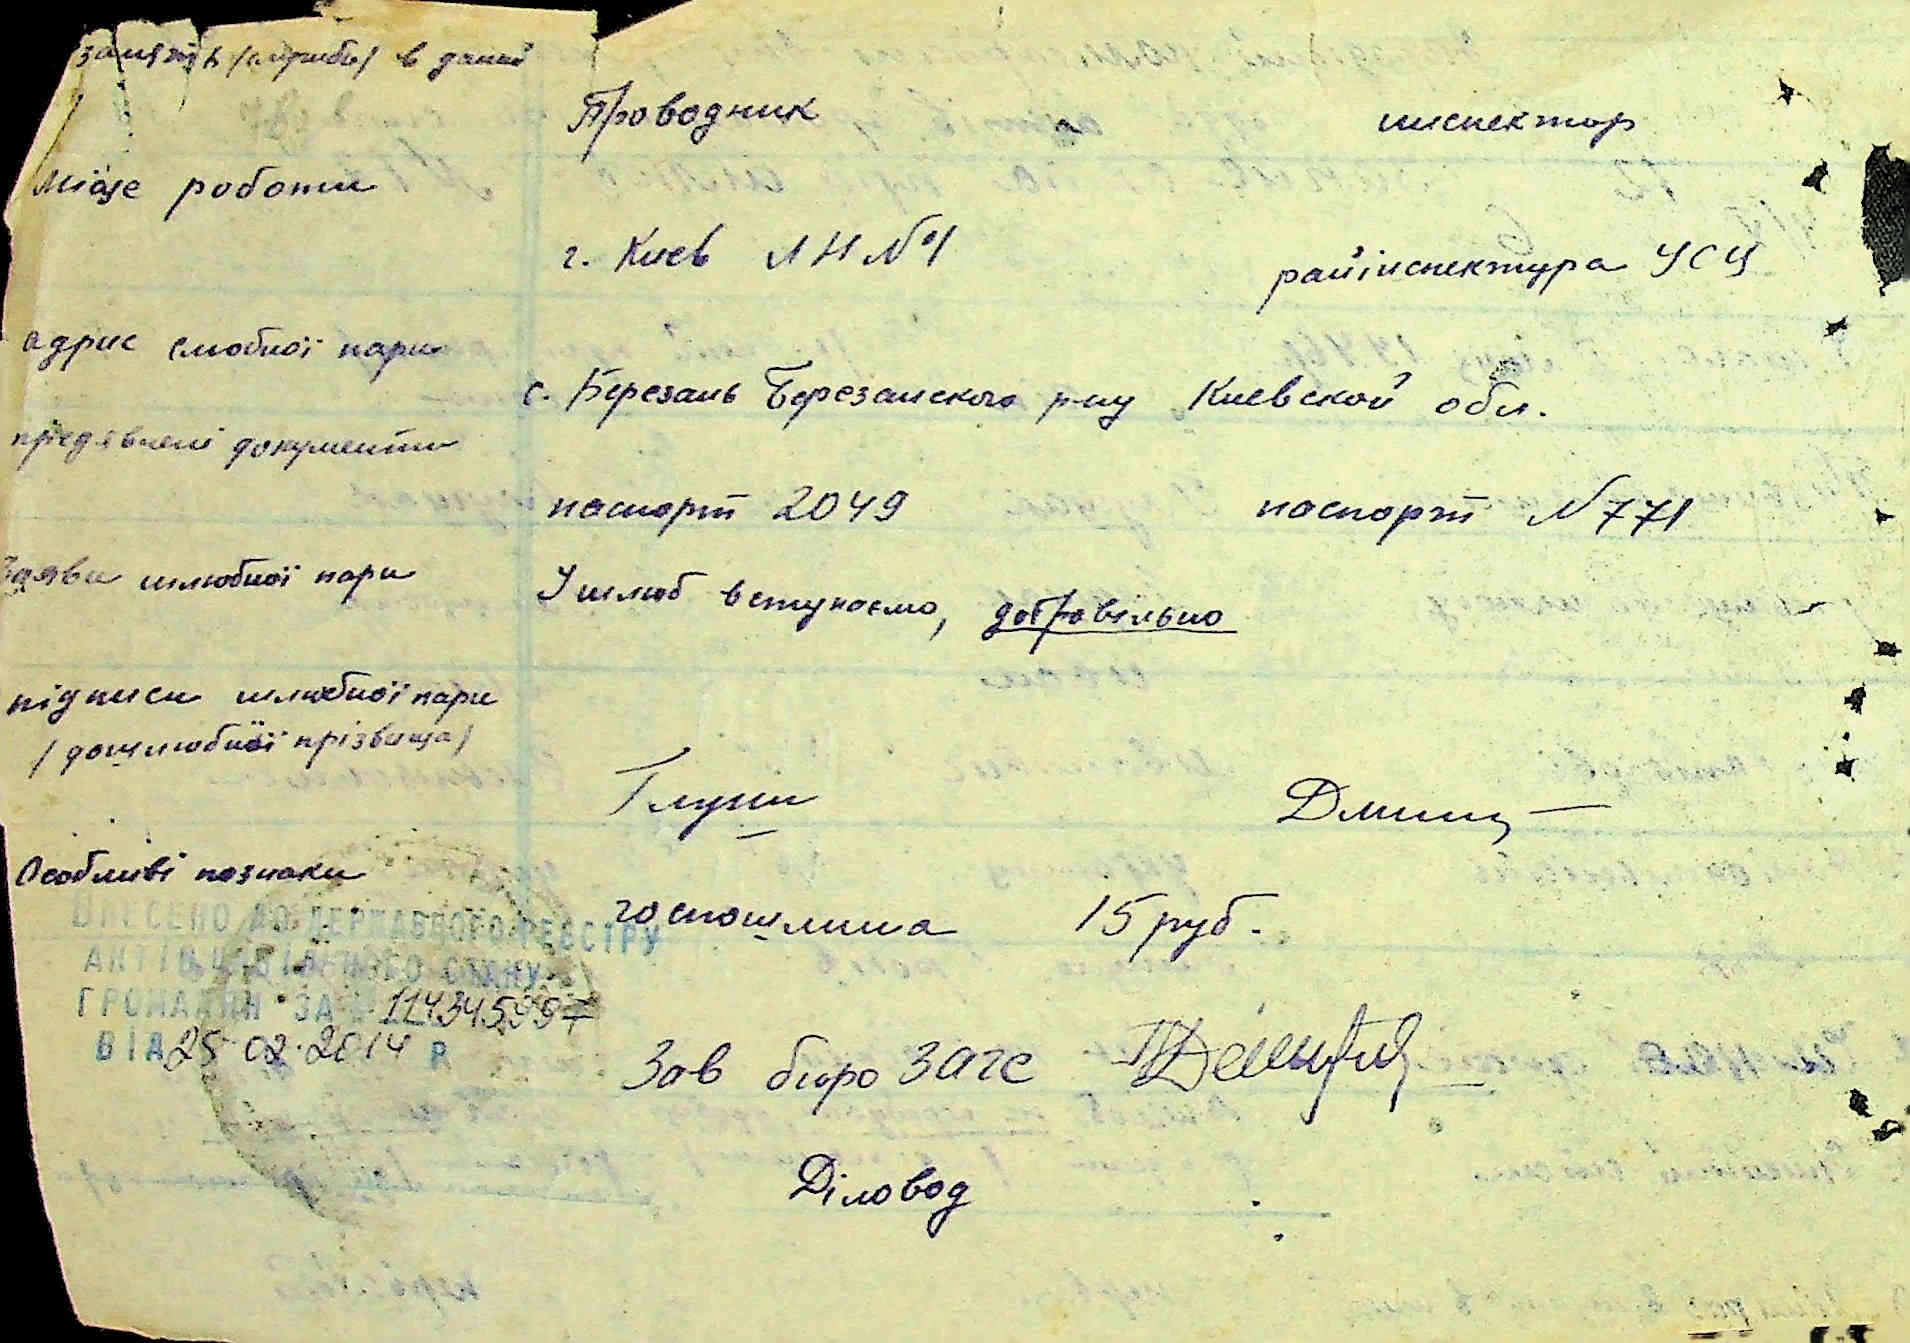 заняття /служба/ в даний
Проводник инспектор
місце роботи
г. Киев ЛН №1 райінспектура УСЦ
адрис слюбної пари
с. Березань Березанского р-ну Киевской обл.
предявлені документи
паспорт 2049 паспорт №771
Заяви шлюбної пари
У шлюб вступаємо, добровільно
підписи шлюбної пари
/дошлюбної прізвища/
Глущ Дмит
Особливі познаки
госпошлина 15 руб.
ВНЕСЕНО ДО ДЕРЖАВНОГО РЕЄСТРУ
АКТІВ ЦИВІЛЬНОГО СТАНУ
ГРОМАДЯН ЗА № 114345997
ВІД 25.02.2014 Р
Зав бюро ЗАГС
Діловод